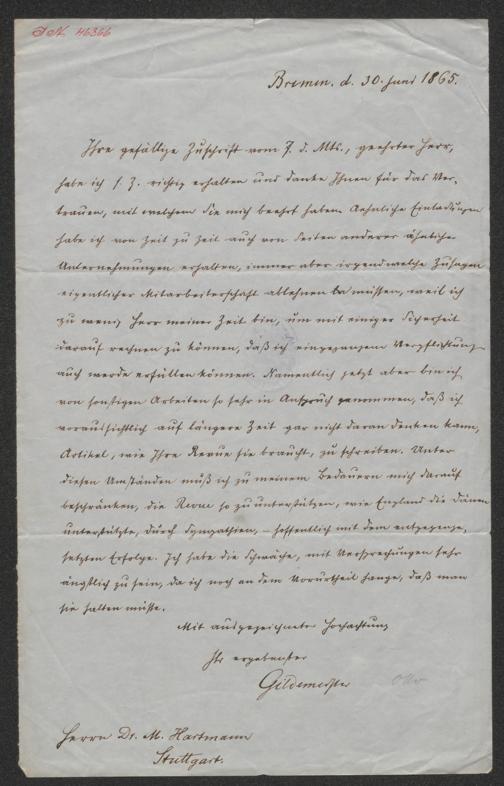 J.N. 46366
Bremen. d. 30. Juni 1865.
Ihre gefällige Zuschrift vom 7. d. Mts., geehrter Herr,
habe ich s. Z. richtig erhalten und danke Ihnen für das Ver-
trauen, mit welchem Sie mich beehrt haben. Aehnliche Einladungen
habe ich von Zeit zu Zeit auch von Seiten anderer ähnlicher
Unternehmungen erhalten, immer aber irgendwelche Zusagen
eigentlicher Mitarbeiterschaft ablehnen müssen, weil ich
zu wenig Herr meiner Zeit bin, um mit einiger Sicherheit
darauf rechnen zu können, daß ich eingegangene Verpflichtung
auch werde erfüllen können. Namentlich jetzt aber bin ich
von sonstigen Arbeiten so sehr in Anspruch genommen, daß ich
voraussichtlich auf längere Zeit gar nicht daran denken kann,
Artikel, wie Ihre Revue sie braucht, zu schreiben. Unter
diesen Umständen muß ich zu meinem Bedauern mich darauf
beschränken, die Revue so zu unterstützen, wie England die Dänen
unterstützte, durch Sympathien, – hoffentlich mit dem entgegenge-
setzten Erfolge. Ich habe die Schwäche, mit Versprechungen sehr
ängstlich zu sein, da ich noch an dem Vorurtheil hange, daß man
sie halten müsse.
Mit ausgezeichneter Hochachtung
Ihr ergebenster
Gildemeister
Otto
Herrn Dr. M. Hartmann
Stuttgart.